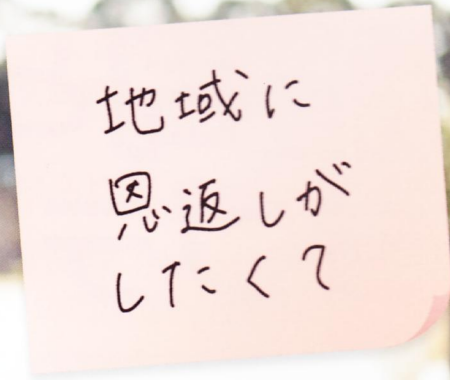 地域に
恩返しが
したくて